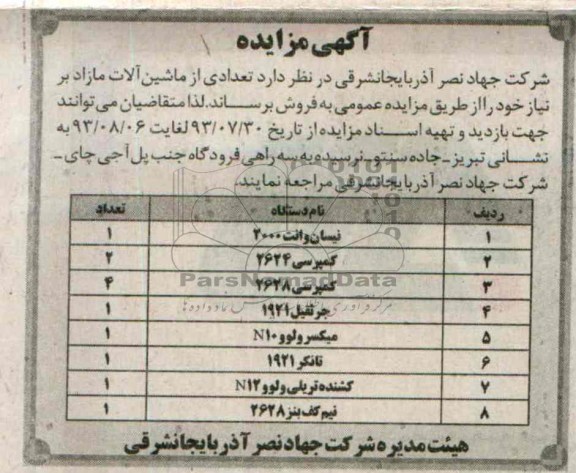 آگهی مزایده
شرکت جهاد نصر آذربایجانشرقی در نظر دارد تعدادی از ماشین‌آلات مازاد بر
نیاز خود را از طریق مزایده عمومی به فروش برساند. لذا متقاضیان می‌توانند
جهت بازدید و تهیه اسناد مزایده از تاریخ ۹۳/۰۷/۳۰ لغایت ۹۳/۰۸/۰۶ به
نشانی تبریز ـ جاده سنتو ـ نرسیده به سه راهی فرودگاه جنب پل آجی چای ـ
شرکت جهاد نصر آذربایجانشرقی مراجعه نمایند.
ردیف نام دستگاه تعداد
۱ نیسان وانت ۲۰۰۰ ۱
۲ کمپرسی ۲۶۲۴ ۲
۳ کمپرسی ۲۶۲۸ ۴
ParsNamadData
۴ جرثقیل ۱۹۲۱ ۱
۵ میکسر ولوو N۱۰ ۱
۶ تانکر ۱۹۲۱ ۱
۷ کشنده تریلی ولوو N۱۲ ۱
۸ نیم کف بنز ۲۶۲۸ ۱
هیئت مدیره شرکت جهاد نصر آذربایجانشرقی